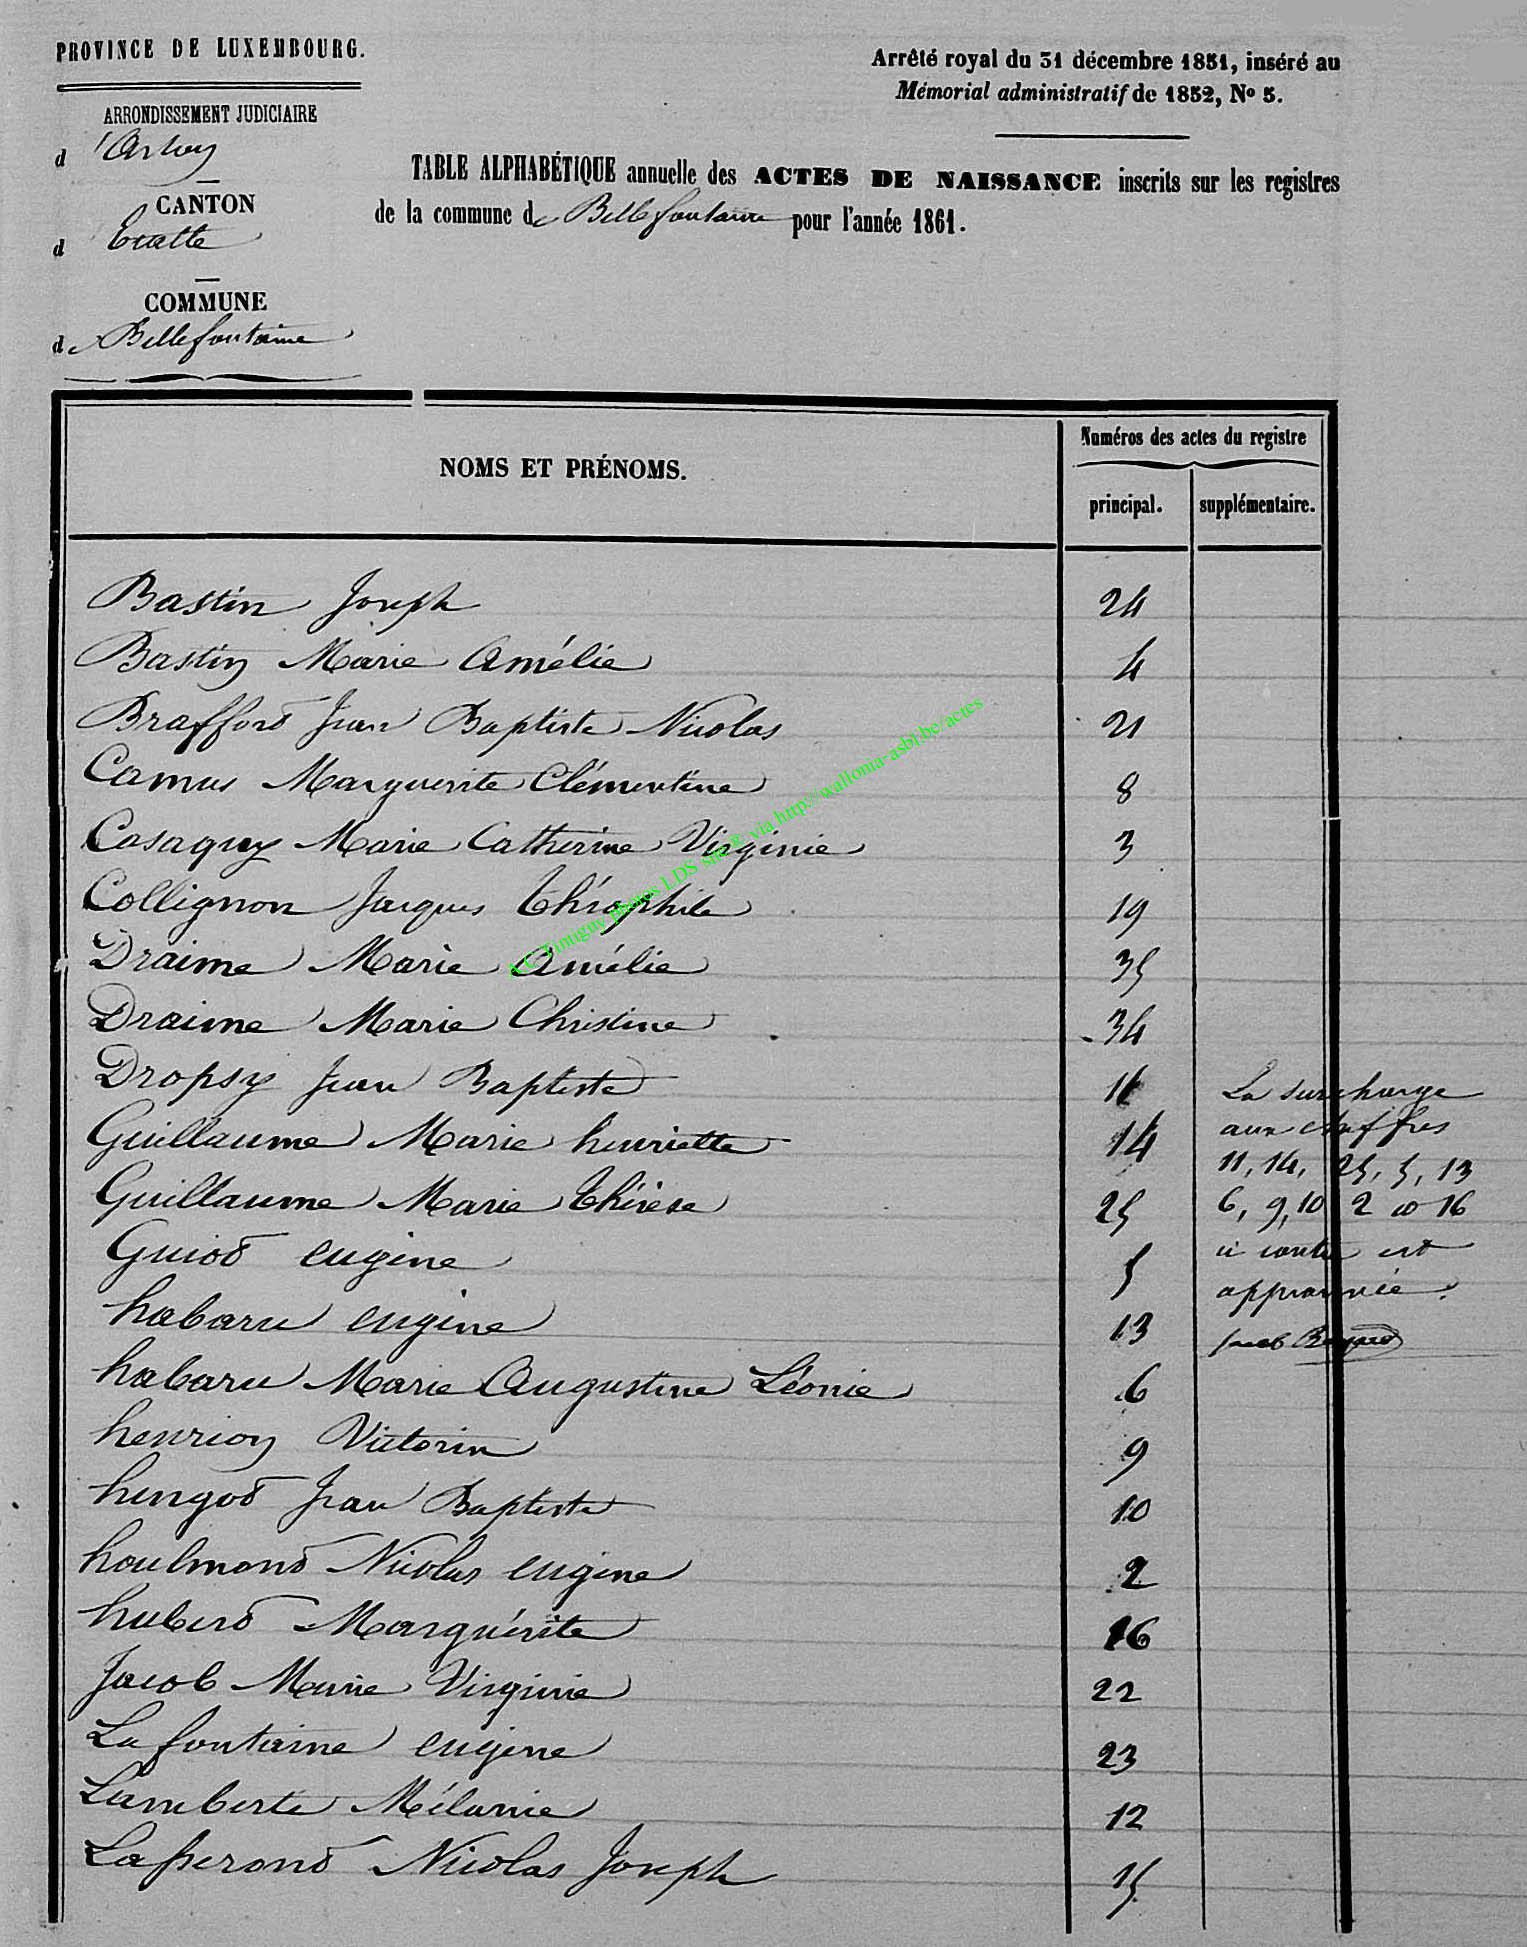 PROVINCE DE LUXEMBOURG.
Arrêté royal du 31 décembre 1851, inséré au
Mémorial administratif de 1852, No 5.
ARRONDISSEMENT JUDICIAIRE
d'Arlon
CANTON
d'Etalle
COMMUNE
de Bellefontaine
TABLE ALPHABÉTIQUE annuelle des ACTES DE NAISSANCE inscrits sur les registres
de la commune de Bellefontaine pour l'année 1861.
NOMS ET PRÉNOMS.
Numéros des actes du registre
principal.
supplémentaire.
Bastin Joseph 24
Bastin Marie Amélie 4
Braffort Jean Baptiste Nicolas 21
Camus Marguerite Clémentine 8
Casaquy Marie Catherine Virginie 3
Collignon Jacques Théophile 19
Draime Marie Amélie 35
Draime Marie Christine 34
Dropsy Jean Baptiste 11
Guillaume Marie henriette 14
Guillaume Marie Thérèse 25
Guiot eugène 5
habaru eugène 13
habaru Marie Augustine Léonie 6
henrion Victorin 9
hengot Jean Baptiste 10
houlmont Nicolas eugène 2
hubert Marguérite 16
Jacob Marie Virginie 22
La fontaine eugène 23
Lamberte Mélanie 12
Lasserond Nicolas Joseph 15
La surcharge
aux chiffres
11, 14, 25, 5, 13
6, 9, 10 2 et 16
ci contre est
approuvée.
A.C. Tintigny photos LDS via http://wallonia-asbl.be/actes